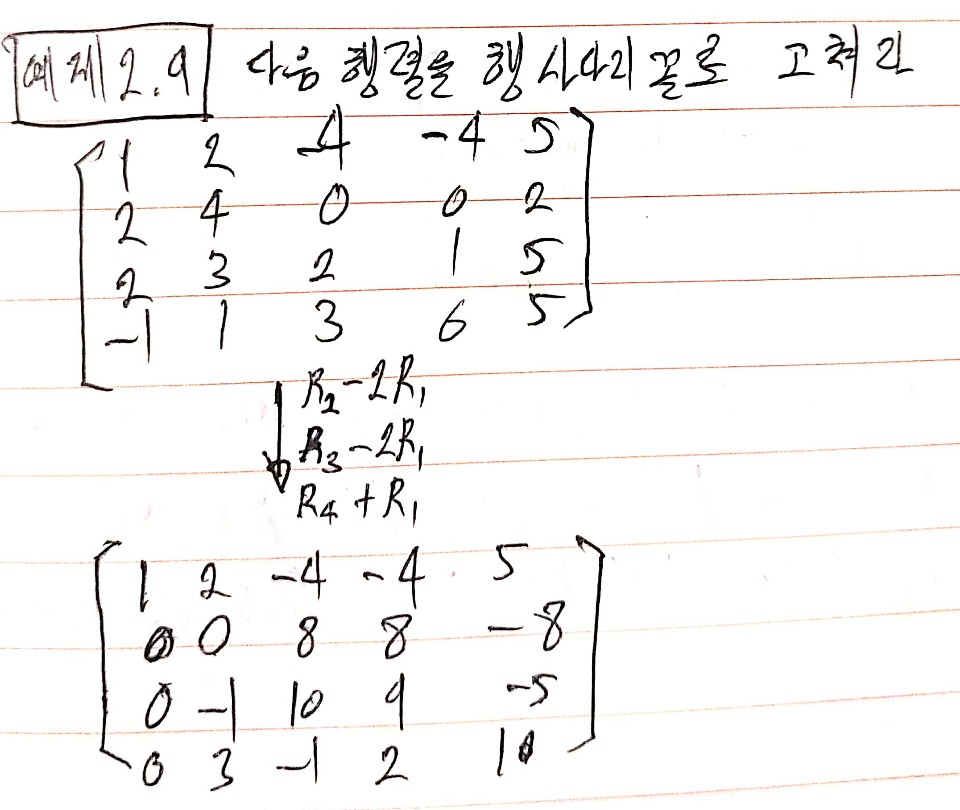 예제 2.9 다음 행렬을 행 사다리 꼴로 고쳐라
1 2 -4 -4 5
2 4 0 0 2
2 3 2 1 5
-1 1 3 6 5
R₂-2R₁
R₃-2R₁
R₄+R₁
1 2 -4 -4 5
0 0 8 8 -8
0 -1 10 9 -5
0 3 -1 2 10